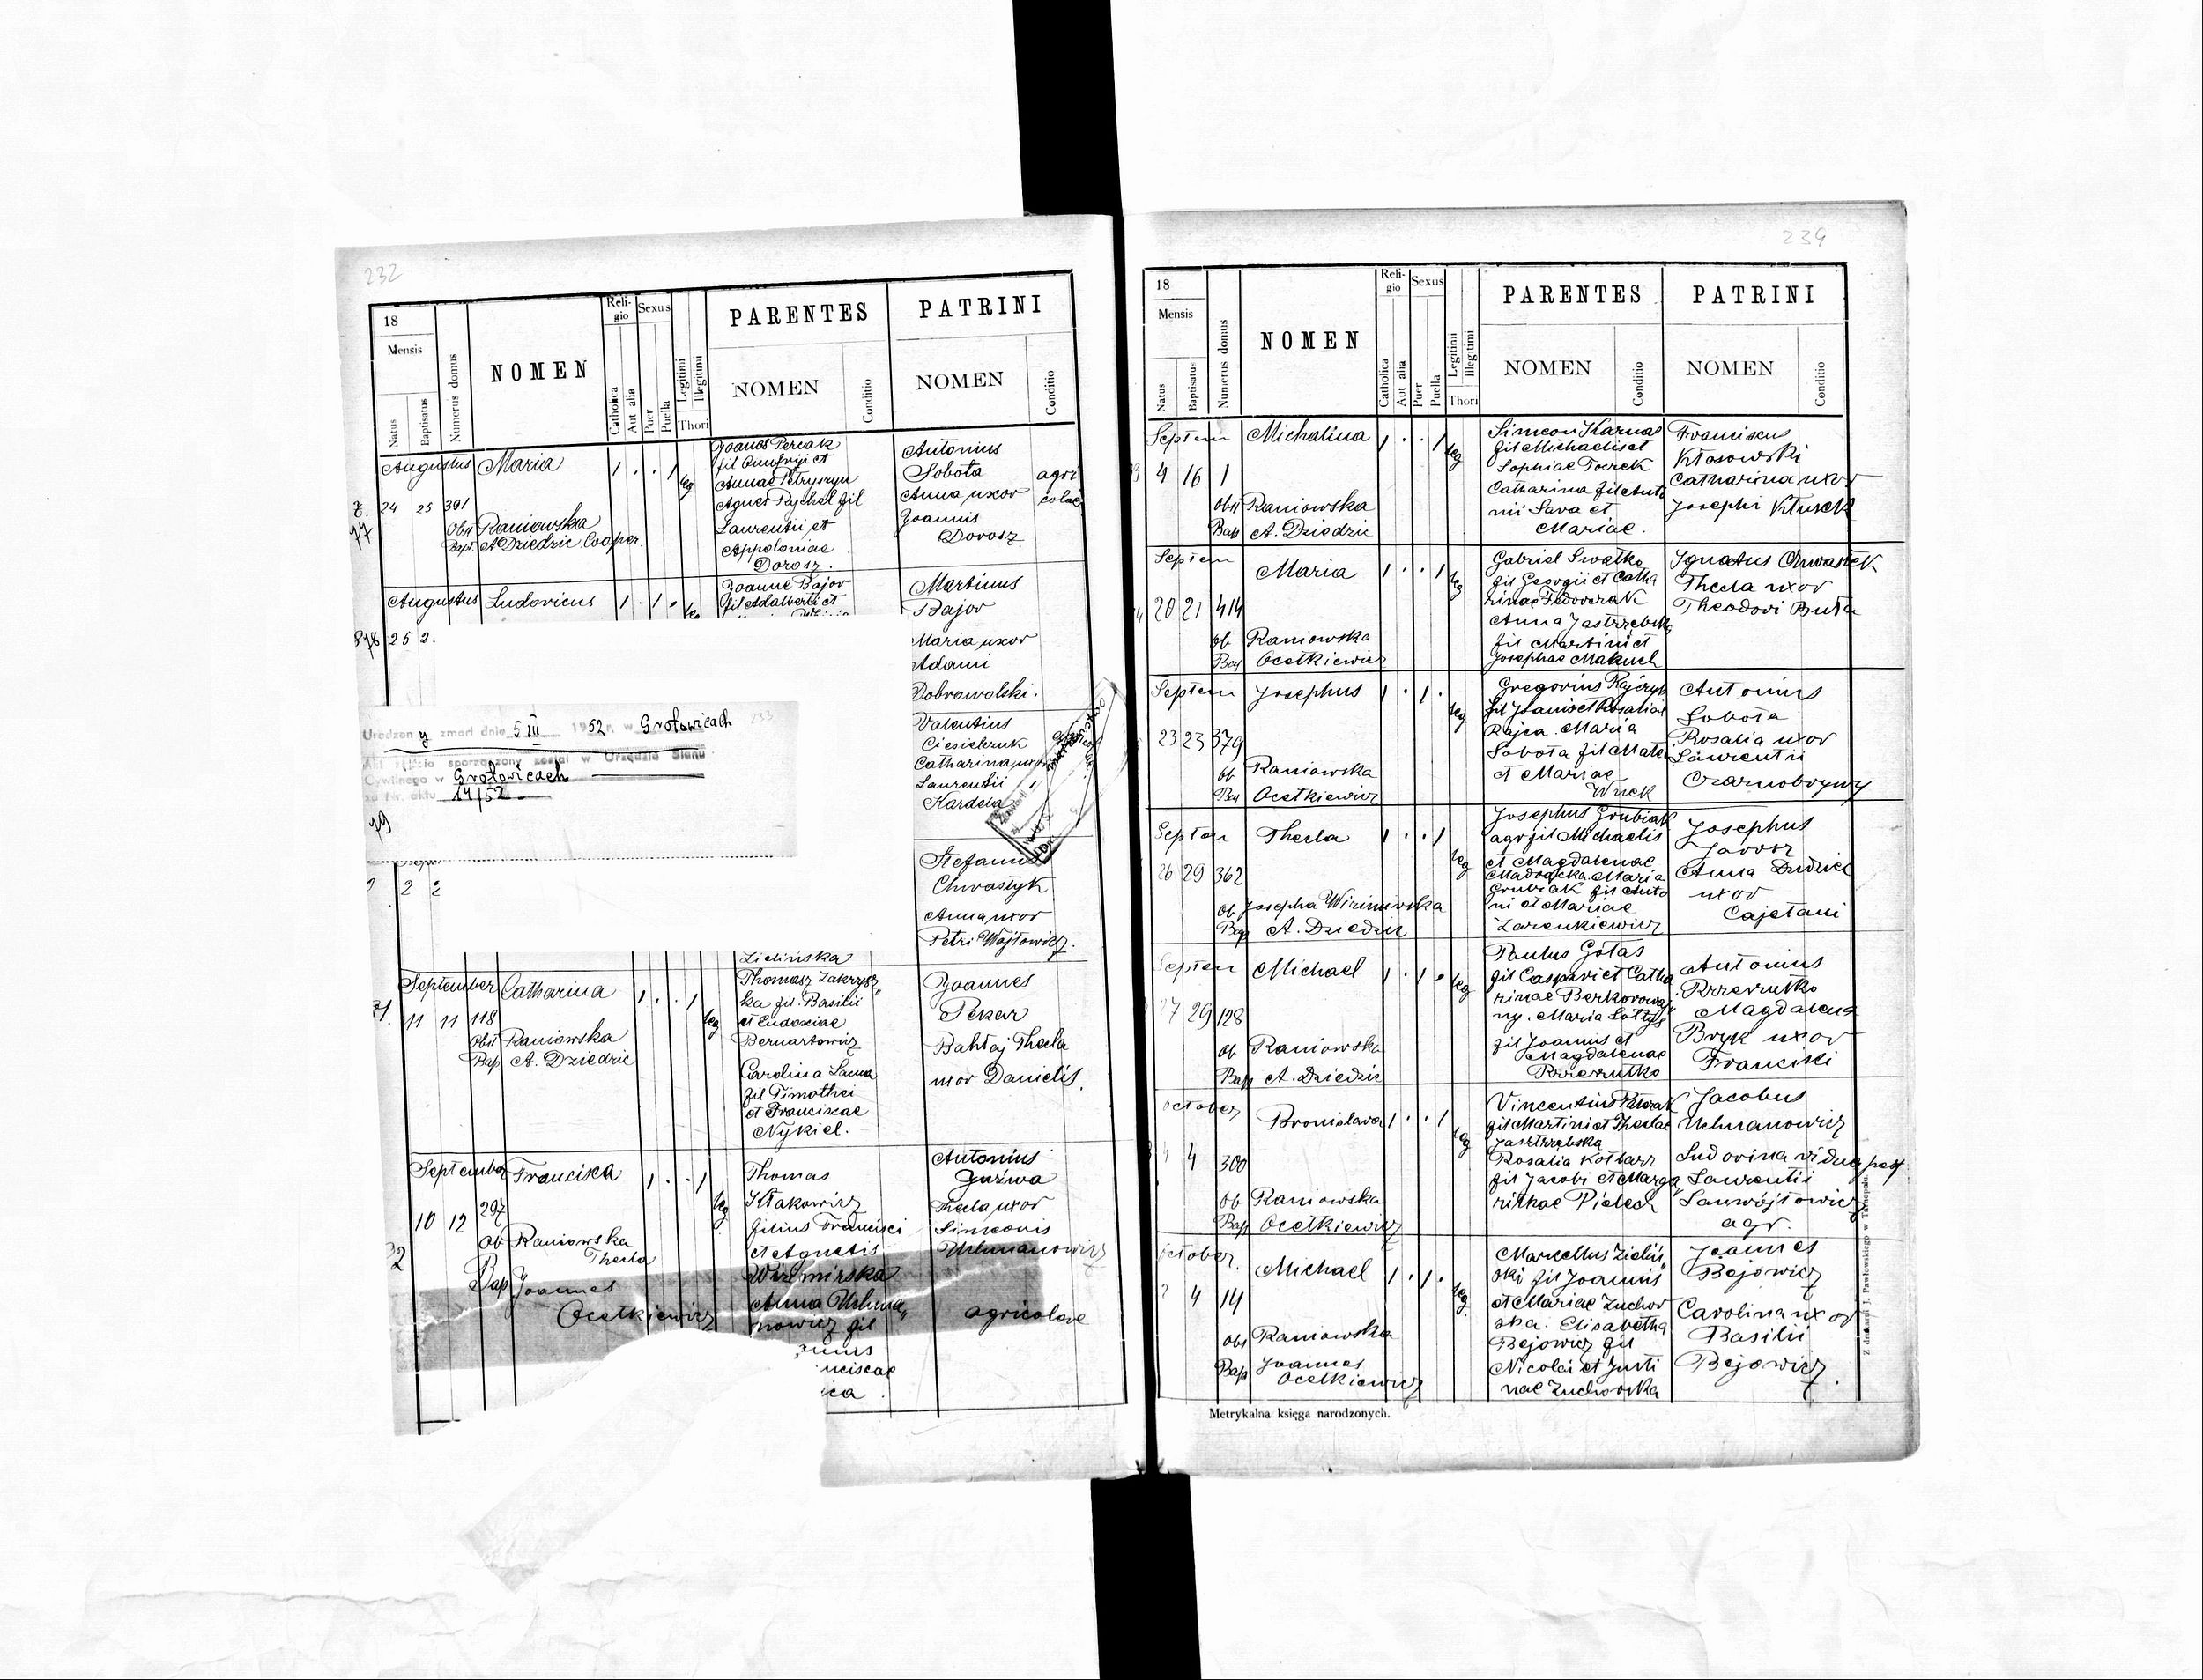 232
18
Mensis
Natus
Baptisatus
Numerus domus
NOMEN
Reli-
gio
Catholica
Aut alia
Sexus
Puer
Puella
Legitimi
Illegitimi
Thori
PARENTES
NOMEN
Conditio
PATRINI
NOMEN
Conditio
Augustus Maria 1 . . 1 leg
24 25 391
77
Obst Raniowska
Bapt. A Dziedzic Cooper.
fil Onufrii et
Annae Petryszyn
Agnes Rychel fil
Laurentii et
Appoloniae
Dorosz.
Antonius
Sobota
Anna uxor
Joannis
Dorosz
agri
colae
Augustus Ludovicus 1 . 1 .
25 2.
Joanne Bajor
fil Adalberti et
Martinus
Bajor
Maria uxor
Adami
Dobrowolski.
Urodzony zmarł dnia 5 III 1952 r. w Grotowicach
233
Akt zejścia sporządzony został w Urzędzie Stanu
Cywilnego w Grotowicach
za Nr. aktu 14/52
79
Valentius
Catharina uxor
Laurentii
Kardela
2 2
Stefanus
Chwastyk
Anna uxor
Petri Wojtowicz.
Zielińska
September Catharina 1 . . 1 leg
11 11 118
Obst Raniowska
Bap. A. Dziedzic
Thomasz Zakrzys„
ka fil. Basilii
et Eudoxiae
Bernartowicz
Carolina Sawa
fil Timothei
et Franciscae
Nykiel.
Joannes
Pekar
Bahtaj Thecla
uxor Danielis.
September Francisca 1 . . 1 leg
10 12 297
Ob Raniowska
Thecla
Bap Joannes
Ocetkiewicz
Thomas
Kłakowicz
filius Francisci
et Agnetis
Wizimirska
Anna Uchma„
nowicz fil
nciscae
ica.
Antonius
Juźwa
Thecla uxor
Simeonis
Uchmanowicz
agricolae
239
18
Mensis
Natus
Baptisatus
Numerus domus
NOMEN
Reli-
gio
Catholica
Aut alia
Sexus
Puer
Puella
Legitimi
Illegitimi
Thori
PARENTES
NOMEN
Conditio
PATRINI
NOMEN
Conditio
Septem Michalina 1 . . 1 leg
4 16 1
Obst Raniowska
Bap A. Dziedzic
Simeon Karnas
fil Michaelis et
Sophiae Tocrek
Catharina fil Anto
nii Sava et
Mariae.
Franciscus
Kłosowski
Catharina uxor
Josephi Kłusek
Septem Maria 1 . . 1 leg
20 21 414
Ob Raniowska
Bap Ocetkiewicz
Gabriel Swatko
fil Georgii et Catha
rinae Fedorczak
Anna Jastrzebska
fil Martini et
Josephae Makuch
Ignatus Chwastek
Thecla uxor
Theodori Buta
Septem Josephus 1 . 1 . leg
23 23 379
Ob Raniowska
Bap Ocetkiewicz
fil Joannis et Rosaliae
Rajca. Maria
Sobota fil Matei
et Mariae
Wuek
Antonius
Sobota
Rosalia uxor
Laurentii
Czarnobrywy
Septem Thecla 1 . . 1 leg
26 29 362
Ob Josepha Wizimirska
Bap A. Dziedzic
Josephus Grubiak
agr fil Michaelis
et Magdalenae
Maria
Grubiak fil Anto
ni et Mariae
Zarenkiewicz
Josephus
Javor
Anna Dudzic
uxor
Cajetani
Septem Michael 1 . 1 . leg
27 29 128
Ob Raniowska
Bap A. Dziedzic
Paulus Gołas
fil Caspari et Catha
rinae Berkorowaj„
ny. Maria Sołtys
fil Joannis et
Magdalenae
Przerutko
Antonius
Przerutko
Magdalena
Bryk uxor
Francisci
October Bronislava 1 . . 1 leg
4 300
Ob Raniowska
Bap Ocetkiewicz
fil Martini et Theclae
Jastrzebska
Rosalia Kotlarz
fil Jacobi et Marga„
rithae Pielech
Jacobus
Uchmanowicz
Ludovina vidua post
Laurentii
Sanwojtowicz
agr.
October. Michael 1 . 1 . leg.
4 14
Obs Raniowska
Bap Joannes
Ocetkiewicz
Marcellus Zieliń„
ski fil Joannis
et Mariae Zuchor
ska. Elisabetha
Bejowicz fil
Nicolai et Justi
nae Zuchorska
Joannes
Bejowicz
Carolina uxor
Basilii
Bejowicz.
Metrykalna księga narodzonych.
Z drukarni J. Pawłowskiego w Tarnopolu.